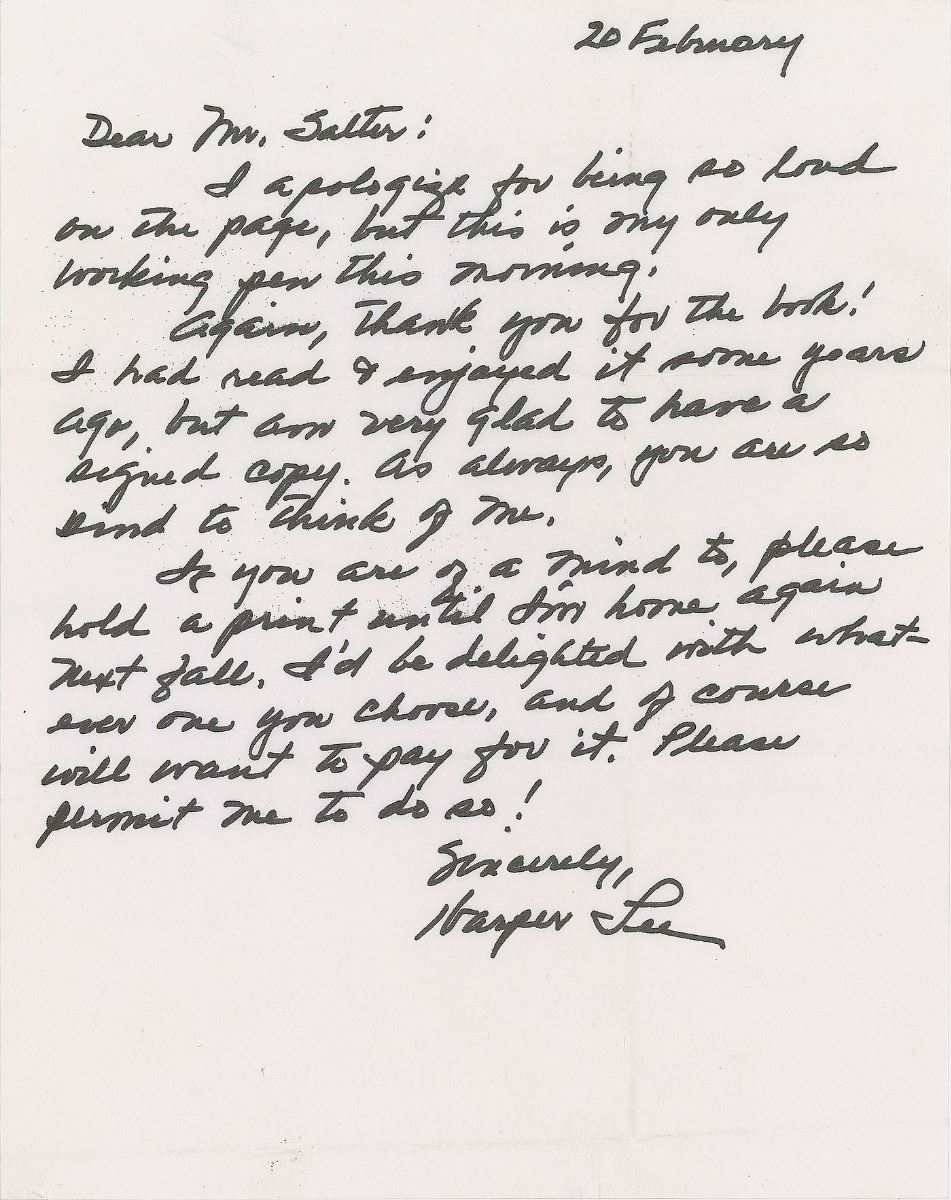 20 February
Dear Mr. Salter:
I apologize for being so loud
on the page, but this is my only
working pen this morning.
Again, thank you for the book!
I had read & enjoyed it some years
ago, but am very glad to have a
signed copy. As always, you are so
kind to think of me.
If you are of a mind to, please
hold a print until I'm home again
next fall. I'd be delighted with what-
ever one you choose, and of course
will want to pay for it. Please
permit me to do so!
Sincerely,
Harper Lee